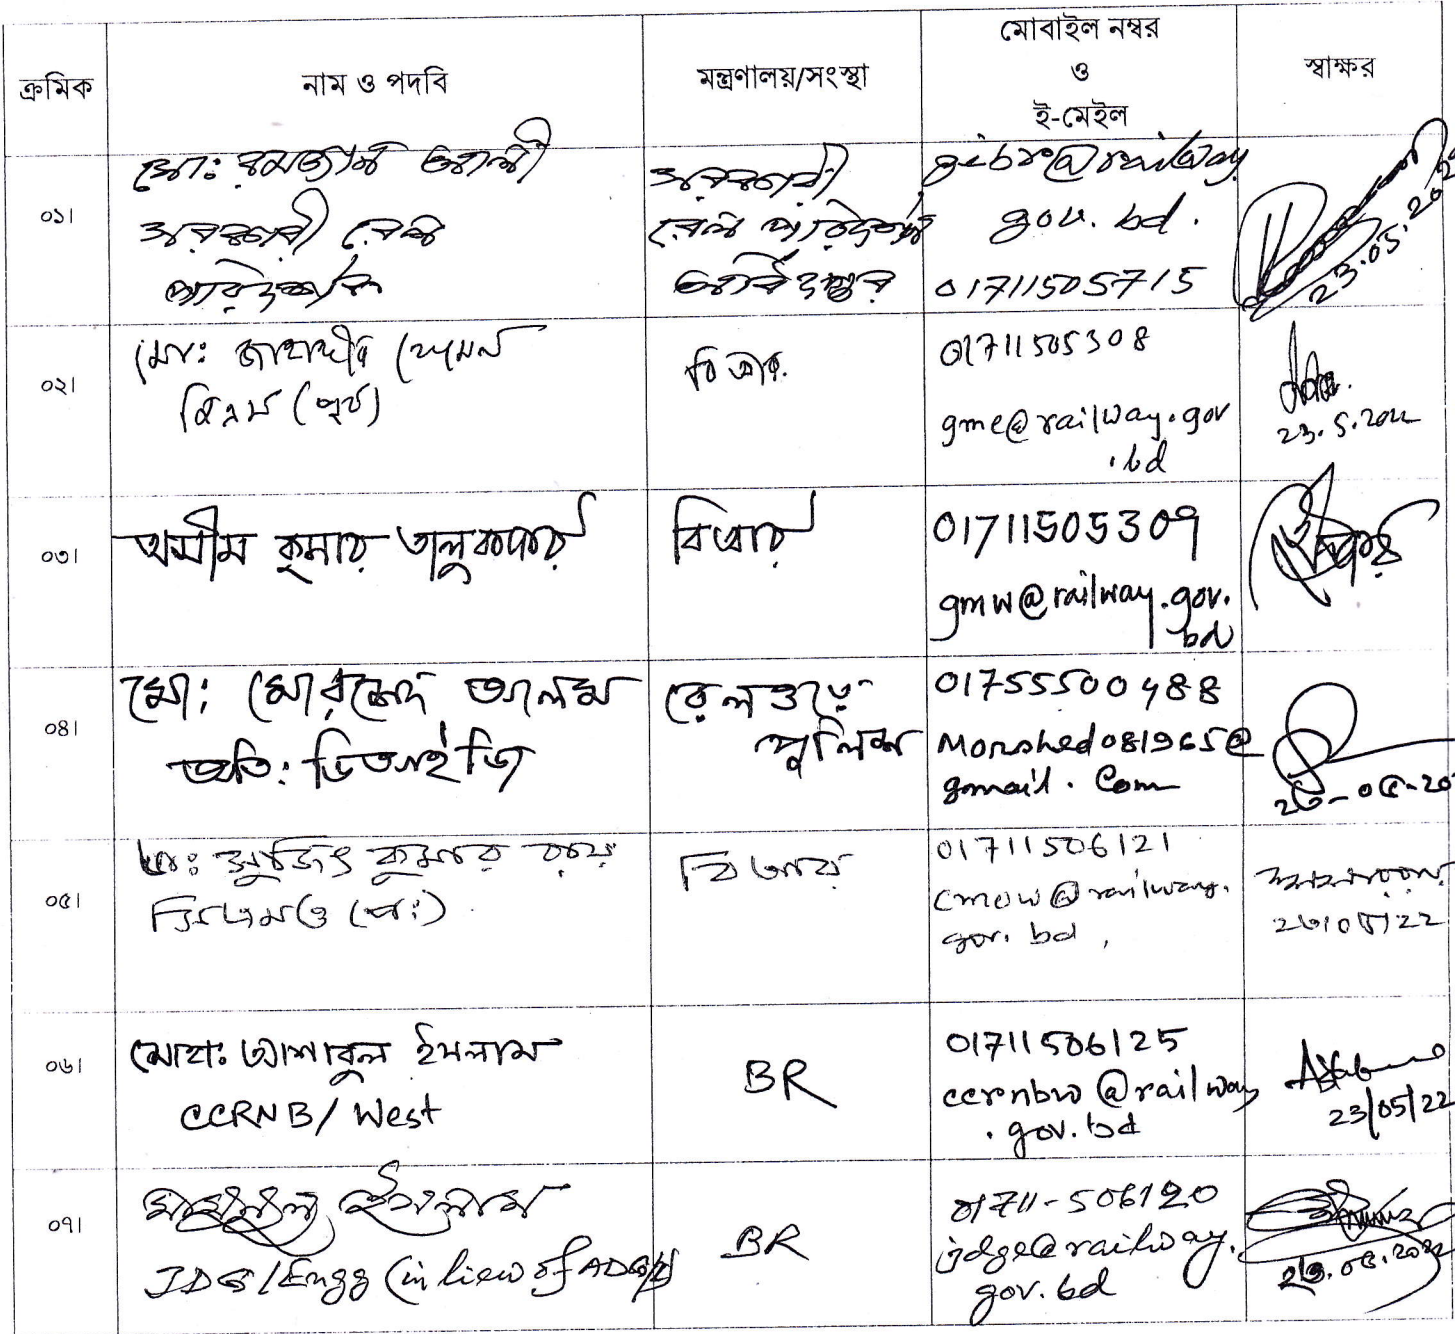 ক্রমিক
নাম ও পদবি
মন্ত্রণালয়/সংস্থা
মোবাইল নম্বর
ও
ই-মেইল
স্বাক্ষর
০১।
মো: রমজান আলী
সরকারী রেল
পরিদর্শক
সরকারী
রেল পরিদর্শন
অধিদপ্তর
gibr@railway.
gov. bd.
01711505715
23.05.20
০২।
মো: জাহাঙ্গীর হোসেন
জিএম (পূর্ব)
বিআর.
01711505308
gme@railway.gov
.bd
23.5.2022
০৩।
অসীম কুমার তালুকদার
বিআর
01711505309
gmw@railway.gov.
bd
০৪।
মো: মোরশেদ আলম
অতি: ডিআইজি
রেলওয়ে
পুলিশ
01755500488
Morshed081965@
gmail. Com
২৩-০৫-২০
০৫।
ডা: সুজিৎ কুমার রায়
সিএমও (প:)
বিআর
01711506121
cmow@railway.
gov. bd,
২৩।০৫।22
০৬।
মোহা: আশাবুল ইসলাম
CCRNB/West
BR
01711506125
ccrnbw@railway
.gov.bd
23/05/22
০৭।
ইসলাম
JDG/Engg (in lieu of ADG/I)
BR
01711-506120
jdge@railway.
gov.bd
২৩.০৫.২০২২